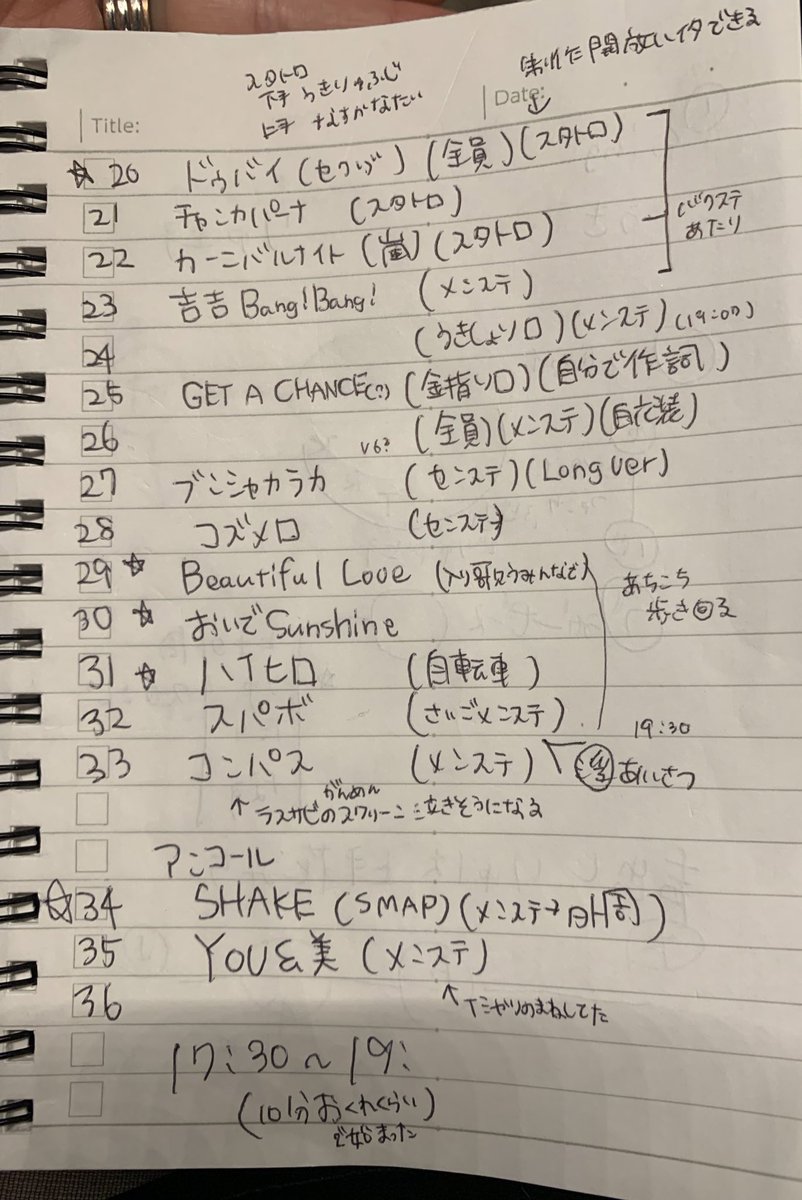 スタトロ
下手 うきりゅふじ
上手 なすかなたい
開放
できる
Title:
Date:
☆ 20 ドゥバイ (セクゾ) (全員) (スタトロ)
21 チャンカパーナ (スタトロ)
22 カーニバルナイト (嵐) (スタトロ)
バクステ
あたり
23 吉吉Bang!Bang! (メンステ)
24 (うきしょソロ) (メンステ) (19:07)
25 GET A CHANCE(?) (金指ソロ) (自分で作詞)
26 V6? (全員) (メンステ) (白衣装)
27 ブンシャカラカ (センステ) (Long ver)
28 コズメロ (センステ)
29 ☆ Beautiful Love (入り歌うみんなで)
あちこち
歩き回る
30 ☆ おいでSunshine
31 ☆ ハイヒロ (自転車)
32 スパボ (さいごメンステ)
19:30
33 コンパス (メンステ) あいさつ
↑ラスサビのスクリーン がんめん 泣きそうになる
アンコール
☆34 SHAKE (SMAP) (メンステ→外周)
35 YOU&美 (メンステ)
36
↑ のまねしてた
17:30〜19:
(10分おくれくらい)
で始まった